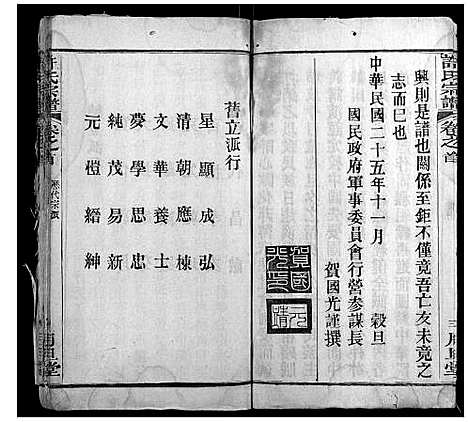 許氏宗譜 卷之首
興則是譜也關係至鉅不僅竟吾亡友未竟之
志而巳也
中華民國二十五年十一月 穀旦
國民政府軍事委員會行營參謀長
賀國光謹撰
賀國光印
元靖
舊立派行
星顯成弘
清朝應棟
文華養士
夢學思忠
純茂易新
元愷縉紳
許氏宗譜 卷之首